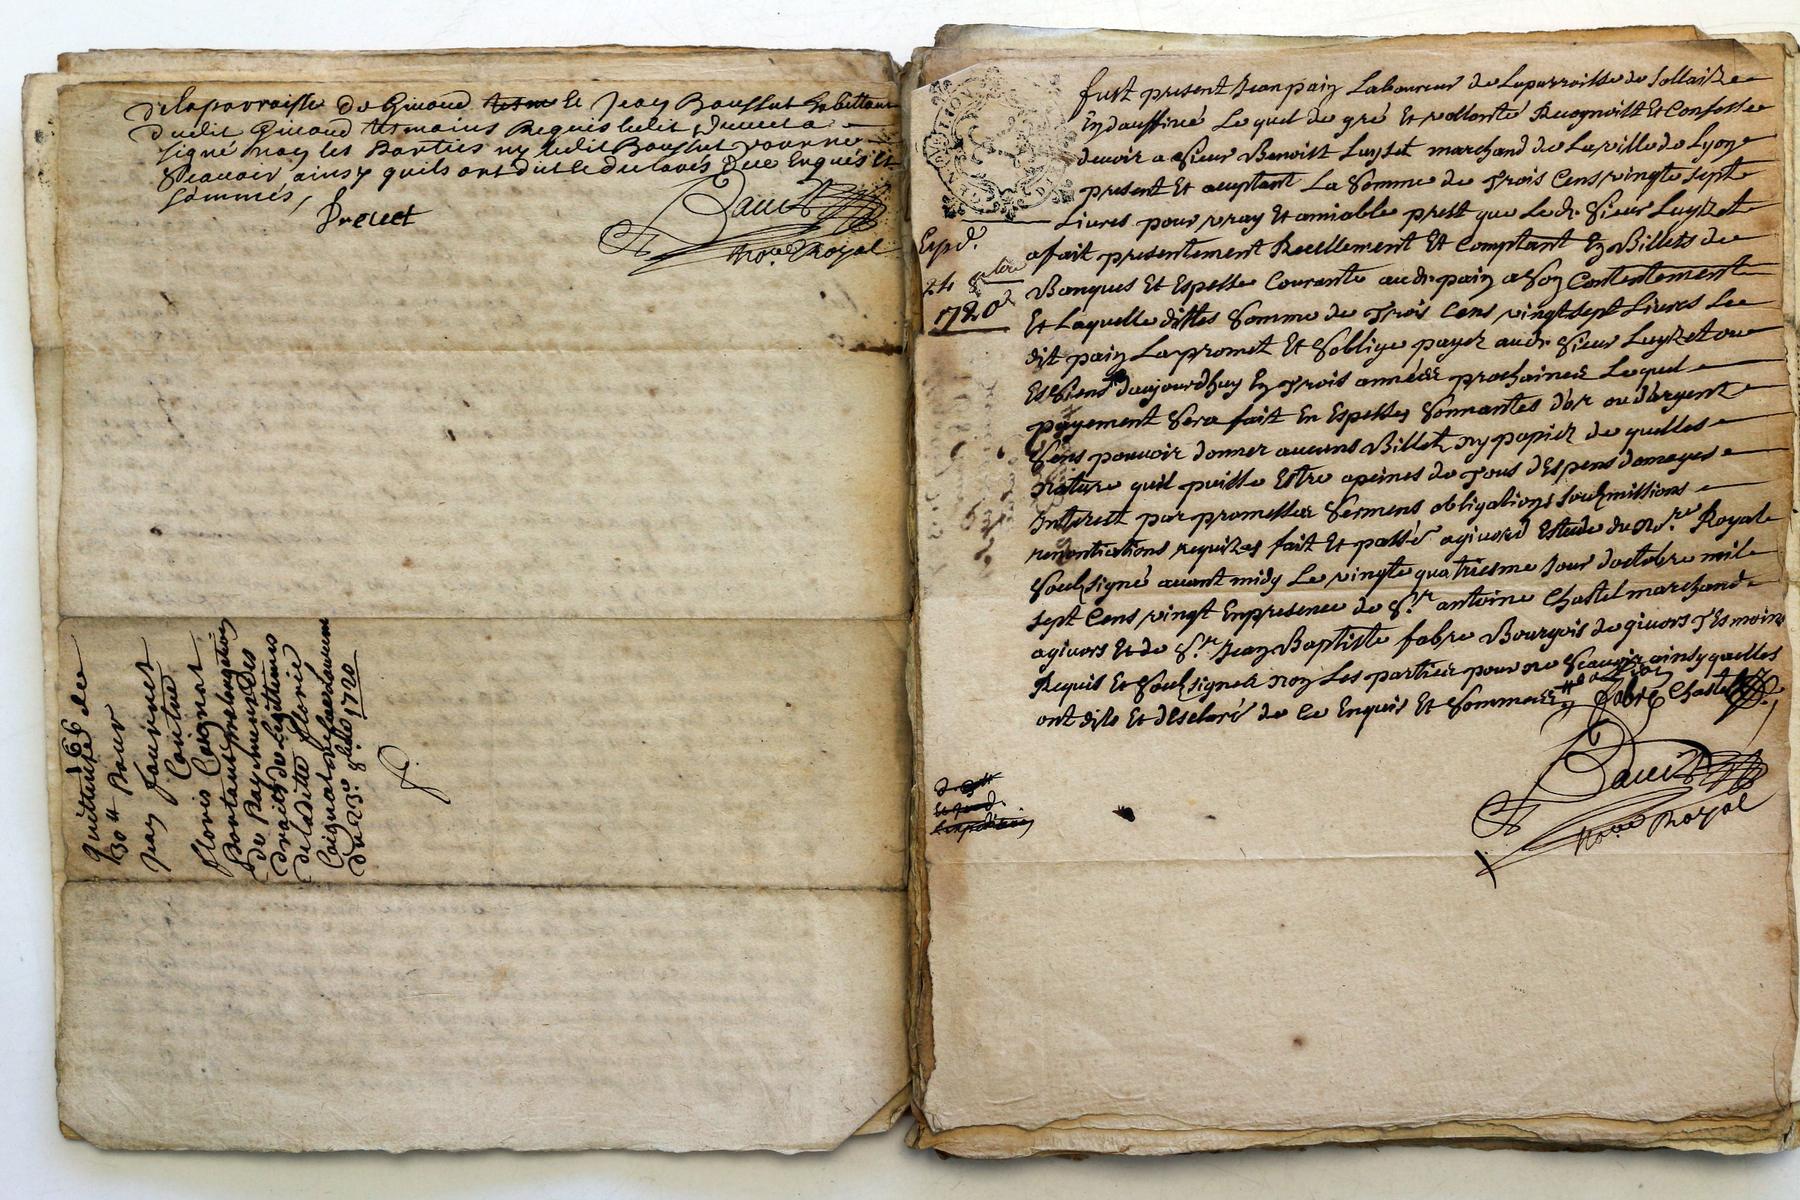 delaparroisse de Givord et Jean Bousset habittans
dudit Givord tesmoins Requis ledit Duvect a
signé non les Parties ny ledit Bousset pour ne
Scauoir ainsy quils ont dit et declarés Due Enquis et
Sommés,
Duvect
Nore Royal
quittance de
30tt Pour
Jean
Contre
Floris Coignat
Portant
de Payement Des
Droits de Legitimes
de laditte Florie
Coignat
du 23e 8bre 1720
fust present Jean pain Laboureur de Laparroisse de Sollaize
En dauffiné Lequel de gré Et vollonté Recognoist Et Confesse
devoir a Sieur Benoist Luyset marchand de La ville de Lyon
present Et aceptant La Somme de Trois Cens vingte sept
Livres pour vray Et amiable prest que Le dt Sieur Luyzet
a fait presentement Reellement Et Comptant En Billets de
Banques Et Espesse Courante audt pain a Son Contentement
Et Laquelle dittes Somme de Trois Cens vingt sept Livres Le
dit pain La promet Et Soblige payer audt Sieur Luyzet ou
Es Siens daujourdhuy En Trois années prochaines Lequel
payement Sera fait En Espesses Sonnantes d'or ou d'argent
Sens pouvoir donner aucuns Billet ny papier de quelles
Nature quil puisse Estre apeines de Tous d'Espens domages
Interest par promesses Sermens obligations Soubmissions
renontiations requizes fait Et passé agivord Estude du Nore Royal
Soubsigné avant midy Le vingte quatriesme Jour doctobre mil
sept Cens vingt Enpresence de Sr antoine Chastel marchand
agivors Et de Sr Jean Baptiste fabre Bourgois de givors Tesmoins
Requis Et Soubsignez non Les parties pour ne Scavoir ainsy quelles
ont dits Et desclaré de Ce Enquis Et Sommeez
fabre Chastel
Nore Royal
Expd.
24 8bre
1720